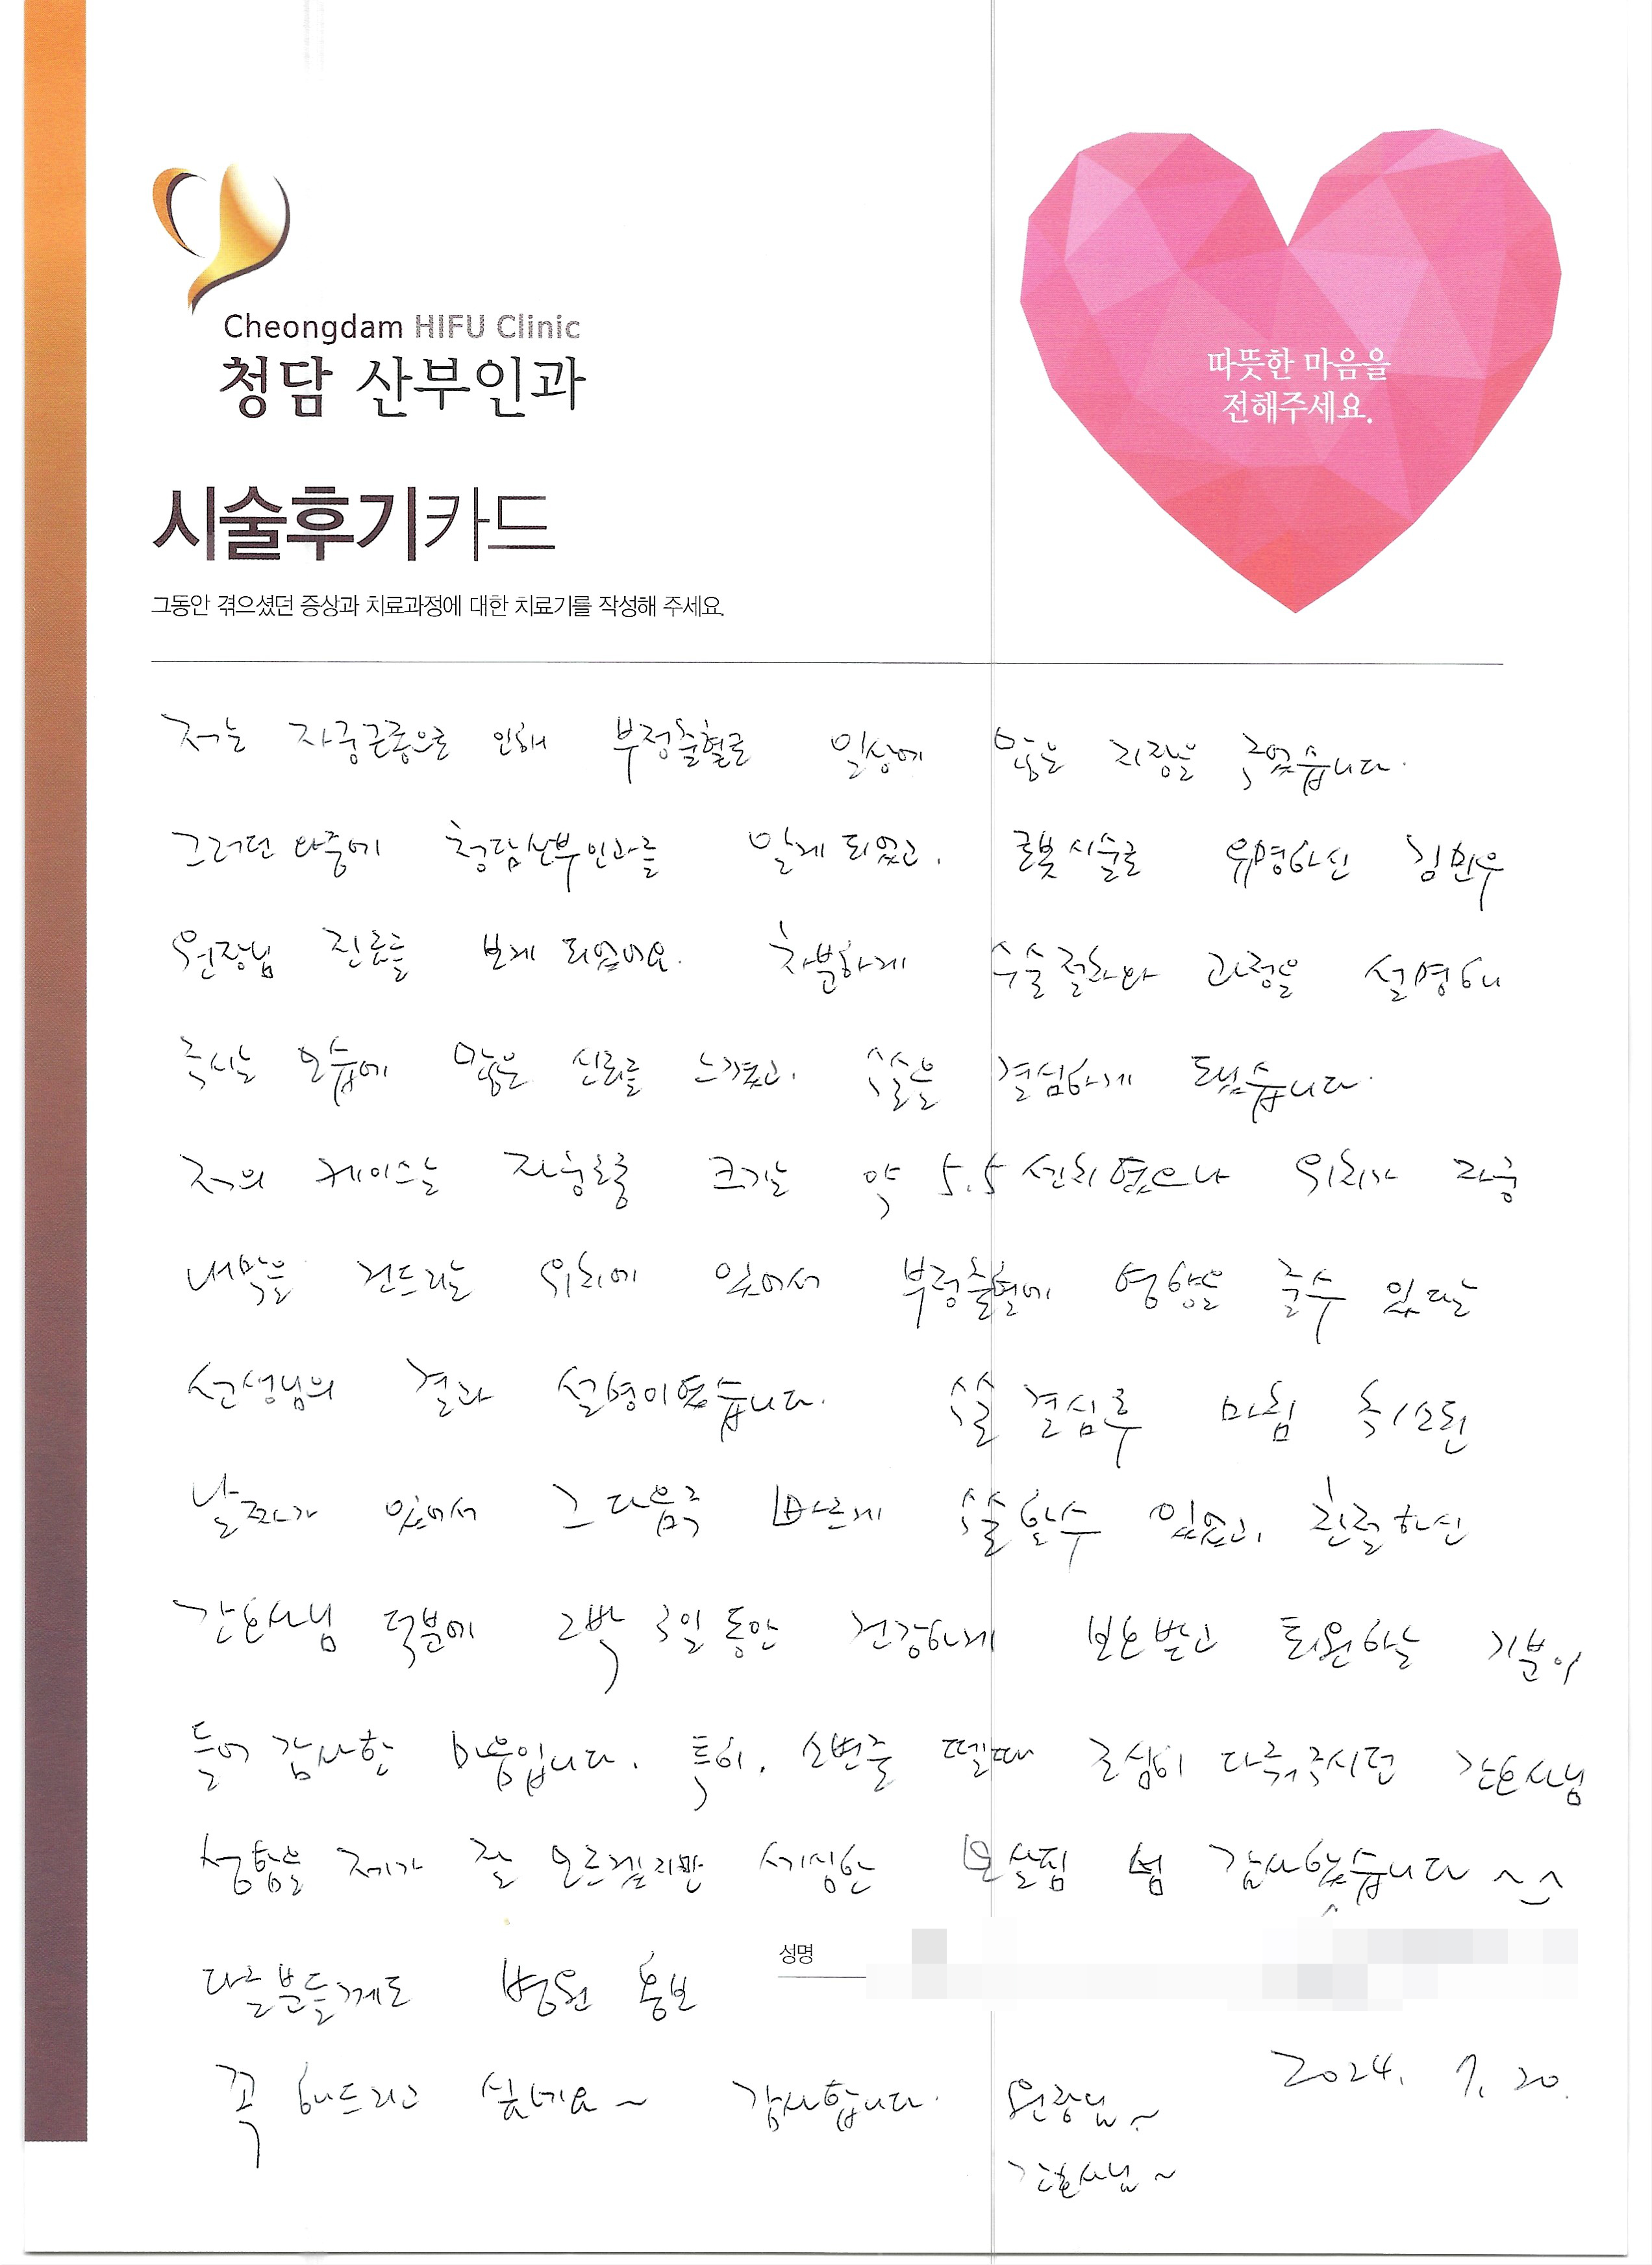 Cheongdam HIFU Clinic
청담 산부인과
따뜻한 마음을
전해주세요.
시술후기카드
그동안 겪으셨던 증상과 치료과정에 대한 치료기를 작성해 주세요.
저는 자궁근종으로 인해 부정출혈로 일상에 많은 지장을 주었습니다.
그러던 와중에 청담산부인과를 알게 되었고, 로봇시술로 유명하신 김민우
원장님 진료를 보게 되었어요. 차분하게 수술절차와 과정을 설명해
주시는 모습에 많은 신뢰를 느꼈고, 수술을 결심하게 됐습니다.
저의 케이스는 크기는 약 5.5 센치였으나 위치가 자궁
내막을 건드리는 위치에 있어서 부정출혈에 영향을 줄수 있다는
선생님의 결과 설명이였습니다. 수술 결심후 마침 취소된
날짜가 있어서 그 다음주 빠르게 수술할수 있었고, 친절하신
간호사님 덕분에 2박 3일동안 건강하게 보호받고 퇴원하는 기분이
들어 감사한 마음입니다. 특히, 소변줄 뗄때 조심히 다뤄주시던 간호사님
성함을 제가 잘 모르겠지만 세심한 보살핌 넘 감사했습니다 ^^
성명
다른분들께도 병원 홍보
꼭 해드리고 싶네요~ 감사합니다. 원장님~
2024. 7. 20.
간호사님~